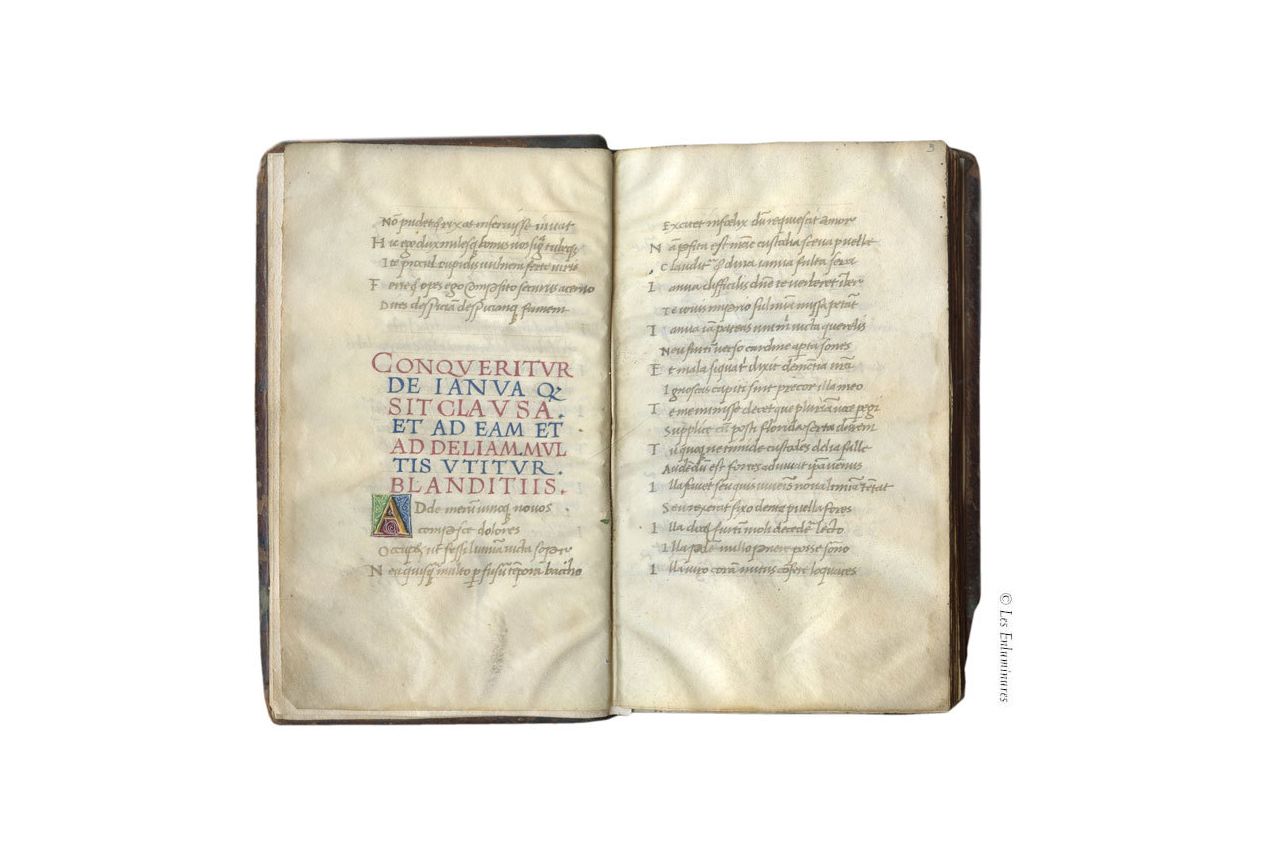 Nō pudet & rixas inseruisse iuuat
Hic ego dux milesq; bonus uos sig̃ tubeq;
Ite procul cupidis uulnera ferte uiris
Ferte & opes ego cōposito securus aceruo
Dites despiciā despicianq; famem
CONQVERITVR
DE IANVA Q
SIT CLAVSA.
ET AD EAM ET
AD DELIAM.MVL
TIS VTITVR.
BLANDITIIS.
Adde merū uinoq; nouos
compesce dolores
Occupet ut fessi lumīa uicta sopor
Neu quisq̃ multo pfusū tēpora baccho
3
Excitet infœlix dū requiescit amor
Nā posita est n̄rae custodia sceua puelle
Clauditur & dura ianua fulta sera
Ianua difficilis dn̄e te uerberet imber
Te iouis imperio fulmīa missa petāt
Ianua iā pateas uni m̄ uicta querelis
Neu furtī uerso cardine apta sones
Et mala siqua t̄ dixit dēmentia n̄rā
Ignoscas capiti sint precor illa meo
Te meminisse decet que plurīa uoce peregi
Supplice cū posti florida serta darem
Tu quoq; ne timide custodes delia falle
Audēdū est fortes adiuuat ipā uenus
Illa fauet seu quis iuuenis noua limīa tētat
Seu reserat fixo dente puella fores
Illa docet furtī molli decedē lecto
Illa pedē nullo ponere posse sono
Illa uiro corā nutus cōferre loquaces
© Les Enluminures